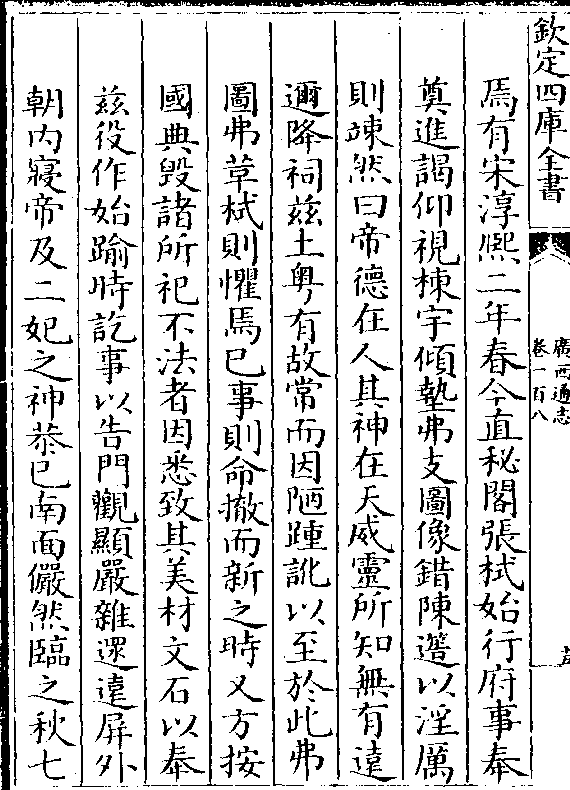 欽定四庫全書
廣西通志
卷一百八
焉有宋淳熙二年春今直秘閣張栻始行府事奉
奠進謁仰視棟宇傾墊弗支圖像錯陳簉以淫厲
則竦然曰帝德在人其神在天威靈所知無有遠
邇降祠兹土粤有故常而因陋踵訛以至於此弗
圖弗草栻則懼焉已事則命撤而新之時又方按
國典毀諸所祀不法者因悉致其美材文石以奉
兹役作始踰時訖事以告門觀顯嚴雜還遠屏外
朝内寢帝及二妃之神恭已南面儼然臨之秋七